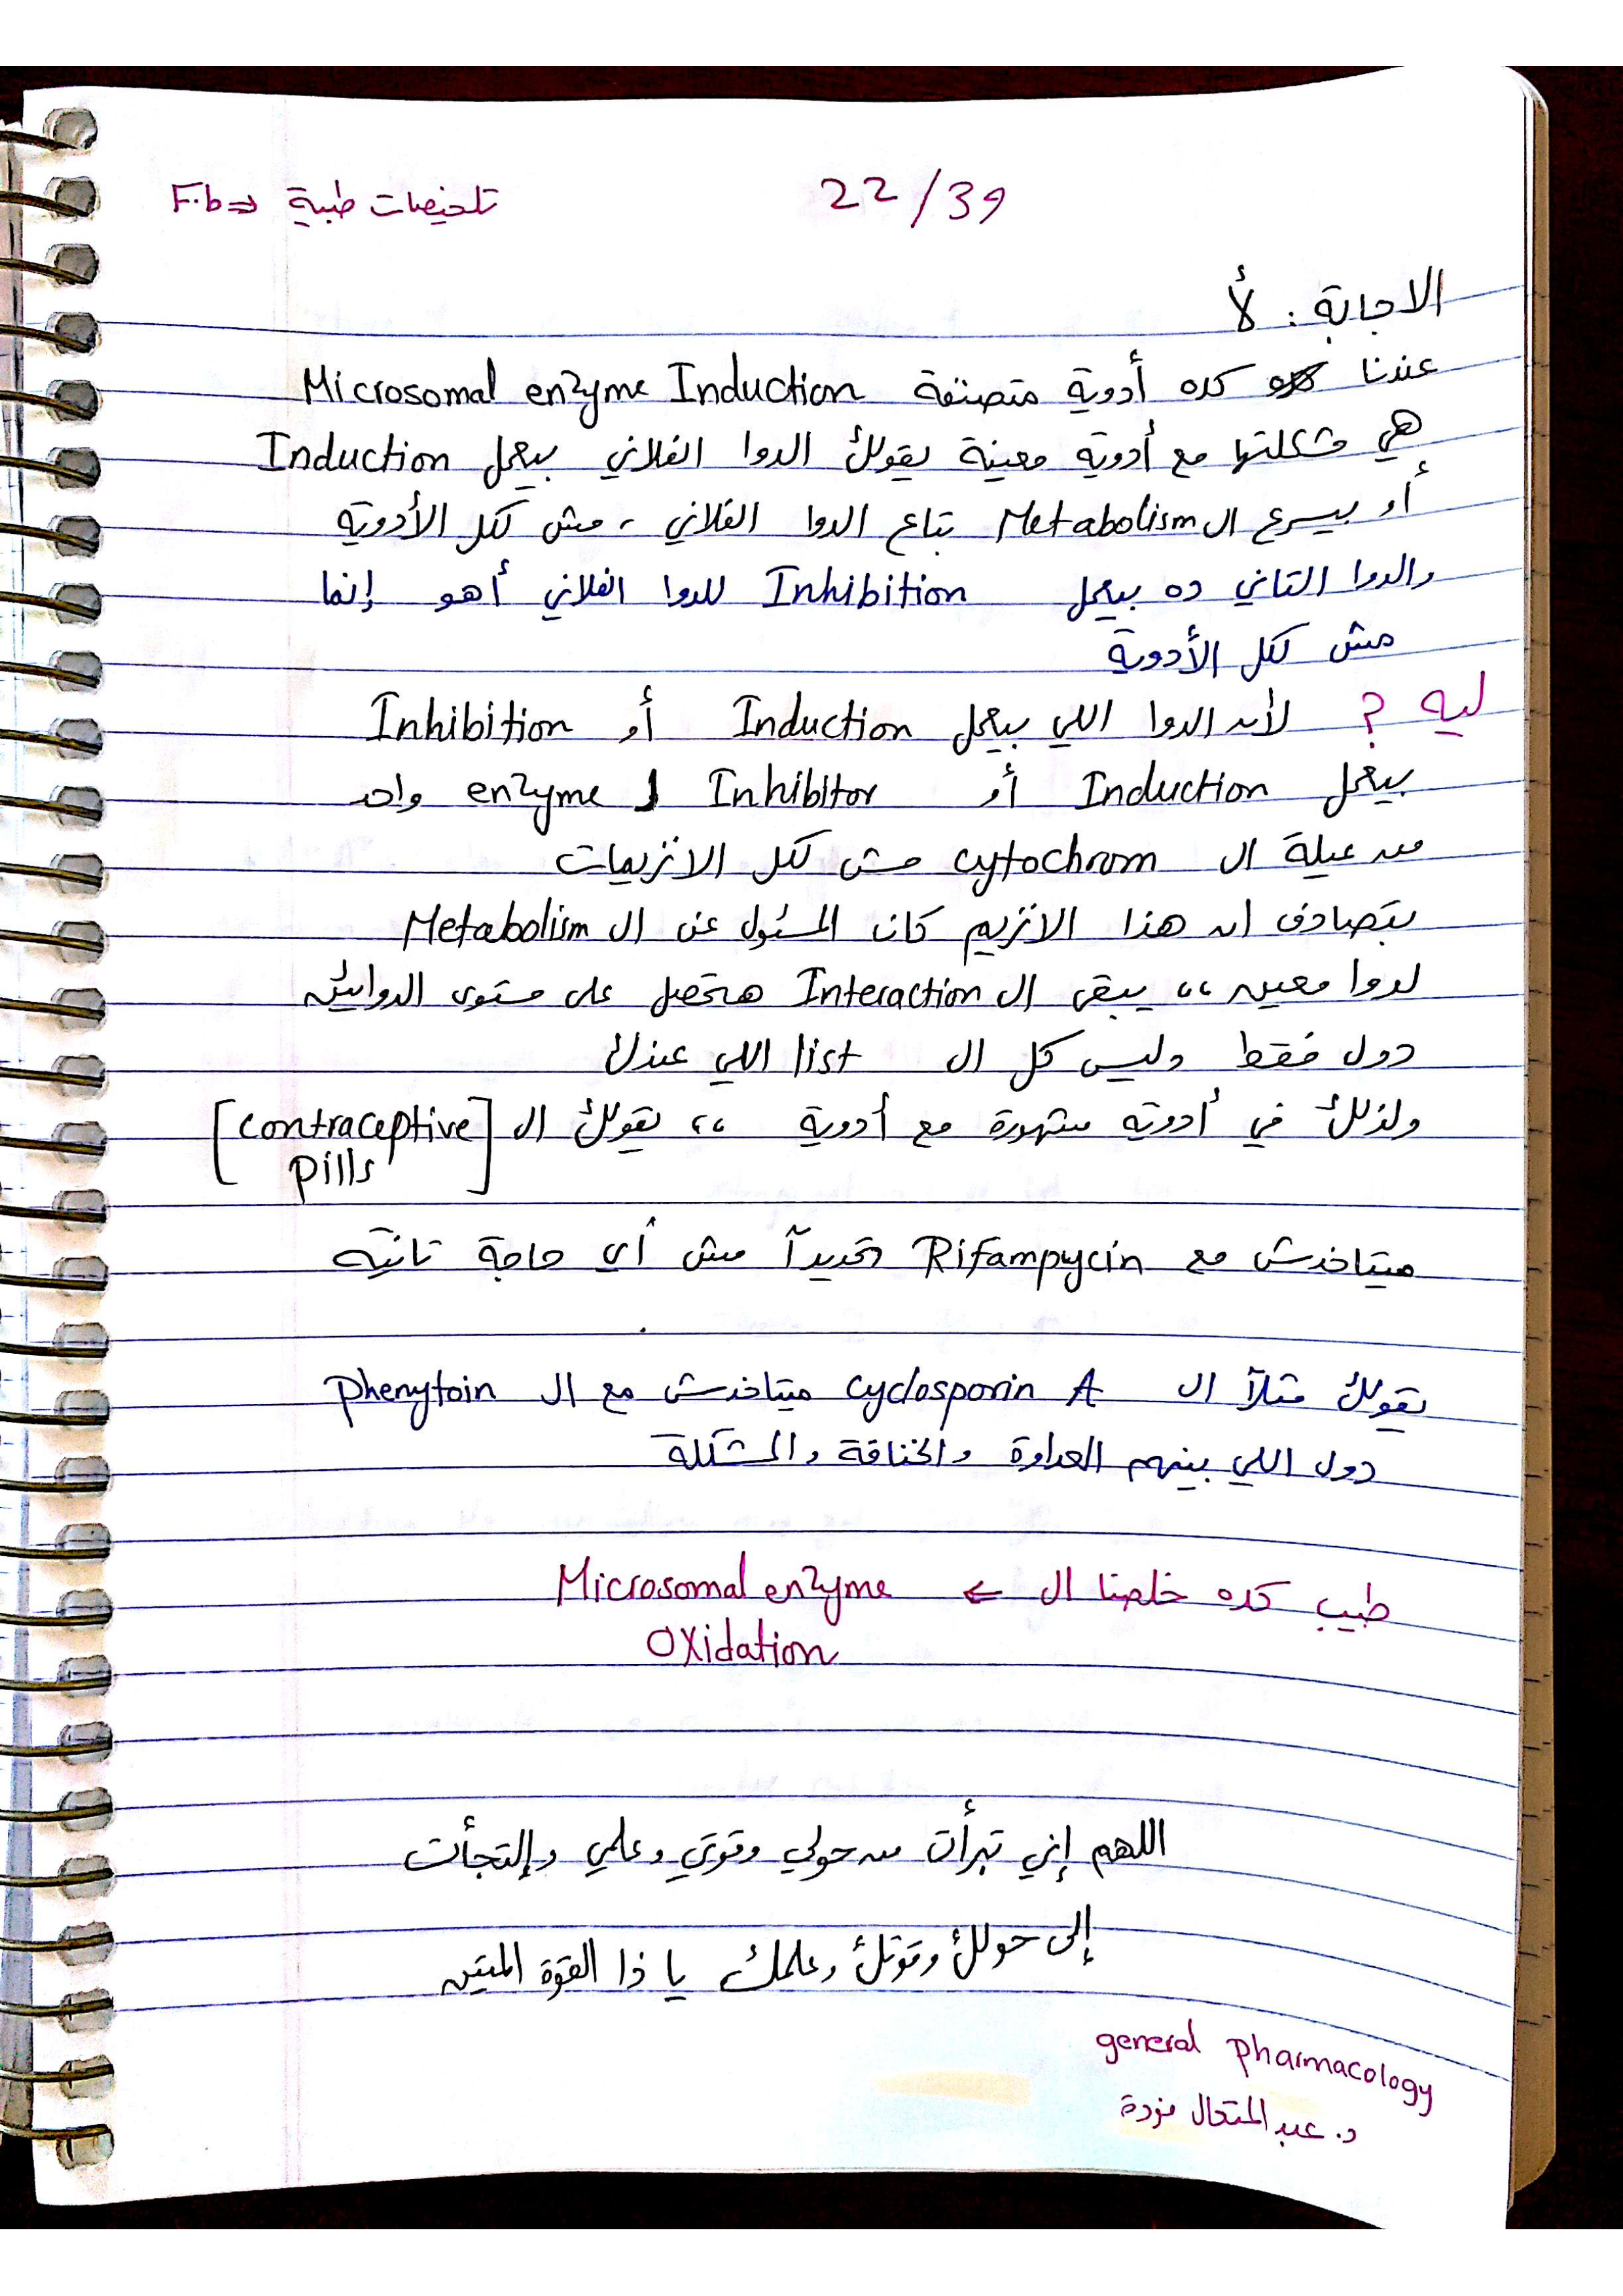 تلخيصات طبية ⇐ F.b
22/39
الاجابة : لأ
عندنا كده أدوية متصنفة Microsomal enzyme Induction
هي مشكلتها مع أدوية معينة يقولك الدوا الفلاني بيعمل Induction
أو بيسرع ال Metabolism بتاع الدوا الفلاني ، مش لكل الأدوية
والدوا التاني ده بيعمل Inhibition للدوا الفلاني أهو إنما
مش لكل الأدوية
ليه ؟ لأن الدوا اللي بيعمل Induction أو Inhibition
بيعمل Induction أو Inhibitor ل enzyme واحد
من عيلة ال cytochrom مش لكل الانزيمات
بتصادف ان هذا الانزيم كان المسئول عن ال Metabolism
لدوا معين ،، يبقى ال Interaction هتحصل على مستوى الدوائين
دول فقط وليس كل ال list اللي عندك
ولذلك في أدوية مشهورة مع أدوية ،، يقولك ال [contraceptive
pills]
ميتاخدش مع Rifampycin تحديداً مش أي حاجة تانية
يقولك مثلاً ال cyclosporin A ميتاخدش مع ال phenytoin
دول اللي بينهم العداوة والخناقة والمشكلة
طيب كده خلصنا ال ← Microsomal enzyme
Oxidation
اللهم إني تبرأت من حولي وقوتي وعلمي وإلتجأت
إلى حولك وقوتك وعلمك يا ذا القوة المتين
general pharmacology
د. عبد المتعال فودة